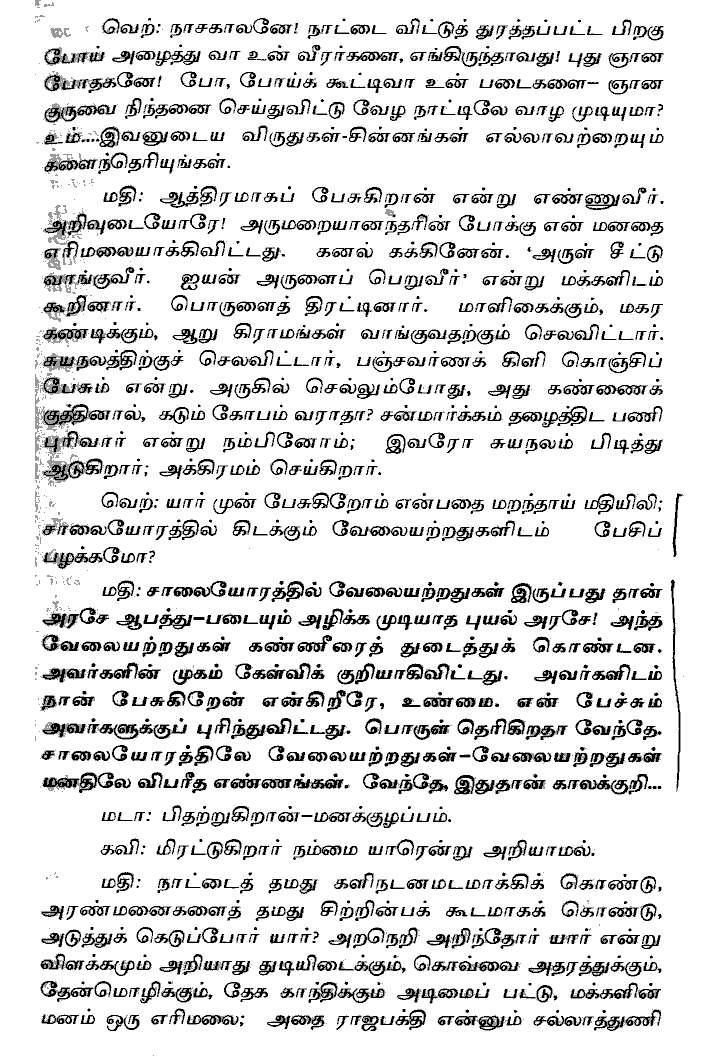 வெற்: நாசகாலனே! நாட்டை விட்டுத் துரத்தப்பட்ட பிறகு
போய் அழைத்து வா உன் வீரர்களை, எங்கிருந்தாவது! புது ஞான
போதகனே! போ, போய்க் கூட்டிவா உன் படைகளை– ஞான
குருவை நிந்தனை செய்துவிட்டு வேழ நாட்டிலே வாழ முடியுமா?
உம்....இவனுடைய விருதுகள்-சின்னங்கள் எல்லாவற்றையும்
களைந்தெரியுங்கள்.
மதி: ஆத்திரமாகப் பேசுகிறான் என்று எண்ணுவீர்.
அறிவுடையோரே! அருமறையானந்தரின் போக்கு என் மனதை
எரிமலையாக்கிவிட்டது. கனல் கக்கினேன். ‘அருள் சீட்டு
வாங்குவீர். ஐயன் அருளைப் பெறுவீர்’ என்று மக்களிடம்
கூறினார். பொருளைத் திரட்டினார். மாளிகைக்கும், மகர
கண்டிக்கும், ஆறு கிராமங்கள் வாங்குவதற்கும் செலவிட்டார்.
சுயநலத்திற்குச் செலவிட்டார், பஞ்சவர்ணக் கிளி கொஞ்சிப்
பேசும் என்று. அருகில் செல்லும்போது, அது கண்ணைக்
குத்தினால், கடும் கோபம் வராதா? சன்மார்க்கம் தழைத்திட பணி
புரிவார் என்று நம்பினோம்; இவரோ சுயநலம் பிடித்து
ஆடுகிறார்; அக்கிரமம் செய்கிறார்.
வெற்: யார் முன் பேசுகிறோம் என்பதை மறந்தாய் மதியிலி;
சாலையோரத்தில் கிடக்கும் வேலையற்றதுகளிடம் பேசிப்
பழக்கமோ?
மதி: சாலையோரத்தில் வேலையற்றதுகள் இருப்பது தான்
அரசே ஆபத்து–படையும் அழிக்க முடியாத புயல் அரசே! அந்த
வேலையற்றதுகள் கண்ணீரைத் துடைத்துக் கொண்டன.
அவர்களின் முகம் கேள்விக் குறியாகிவிட்டது. அவர்களிடம்
நான் பேசுகிறேன் என்கிறீரே, உண்மை. என் பேச்சும்
அவர்களுக்குப் புரிந்துவிட்டது. பொருள் தெரிகிறதா வேந்தே.
சாலையோரத்திலே வேலையற்றதுகள்–வேலையற்றதுகள்
மனதிலே விபரீத எண்ணங்கள். வேந்தே, இதுதான் காலக்குறி...
மடா: பிதற்றுகிறான்–மனக்குழப்பம்.
கவி: மிரட்டுகிறார் நம்மை யாரென்று அறியாமல்.
மதி: நாட்டைத் தமது களிநடனமடமாக்கிக் கொண்டு,
அரண்மனைகளைத் தமது சிற்றின்பக் கூடமாகக் கொண்டு,
அடுத்துக் கெடுப்போர் யார்? அறநெறி அறிந்தோர் யார் என்று
விளக்கமும் அறியாது துடியிடைக்கும், கொவ்வை அதரத்துக்கும்,
தேன்மொழிக்கும், தேக காந்திக்கும் அடிமைப் பட்டு, மக்களின்
மனம் ஒரு எரிமலை; அதை ராஜபக்தி என்னும் சல்லாத்துணி